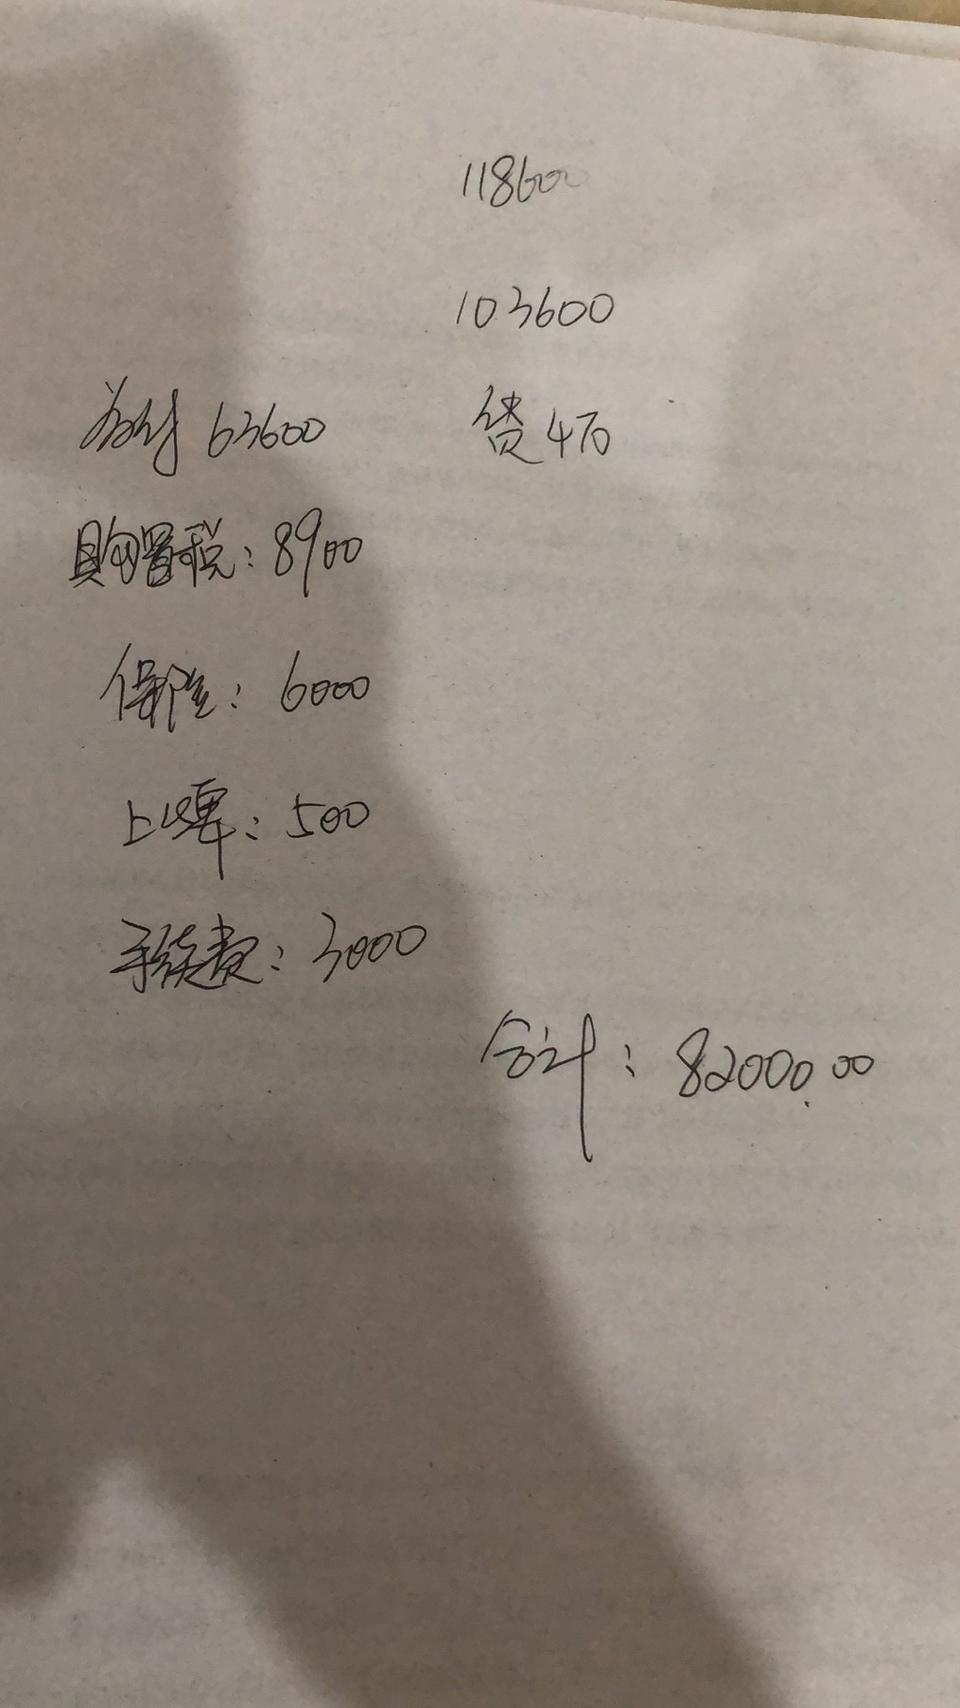 118600
103600
首付 63600 贷4万
购置税：8900
保险：6000
上牌：500
手续费：3000
合计：82000.00